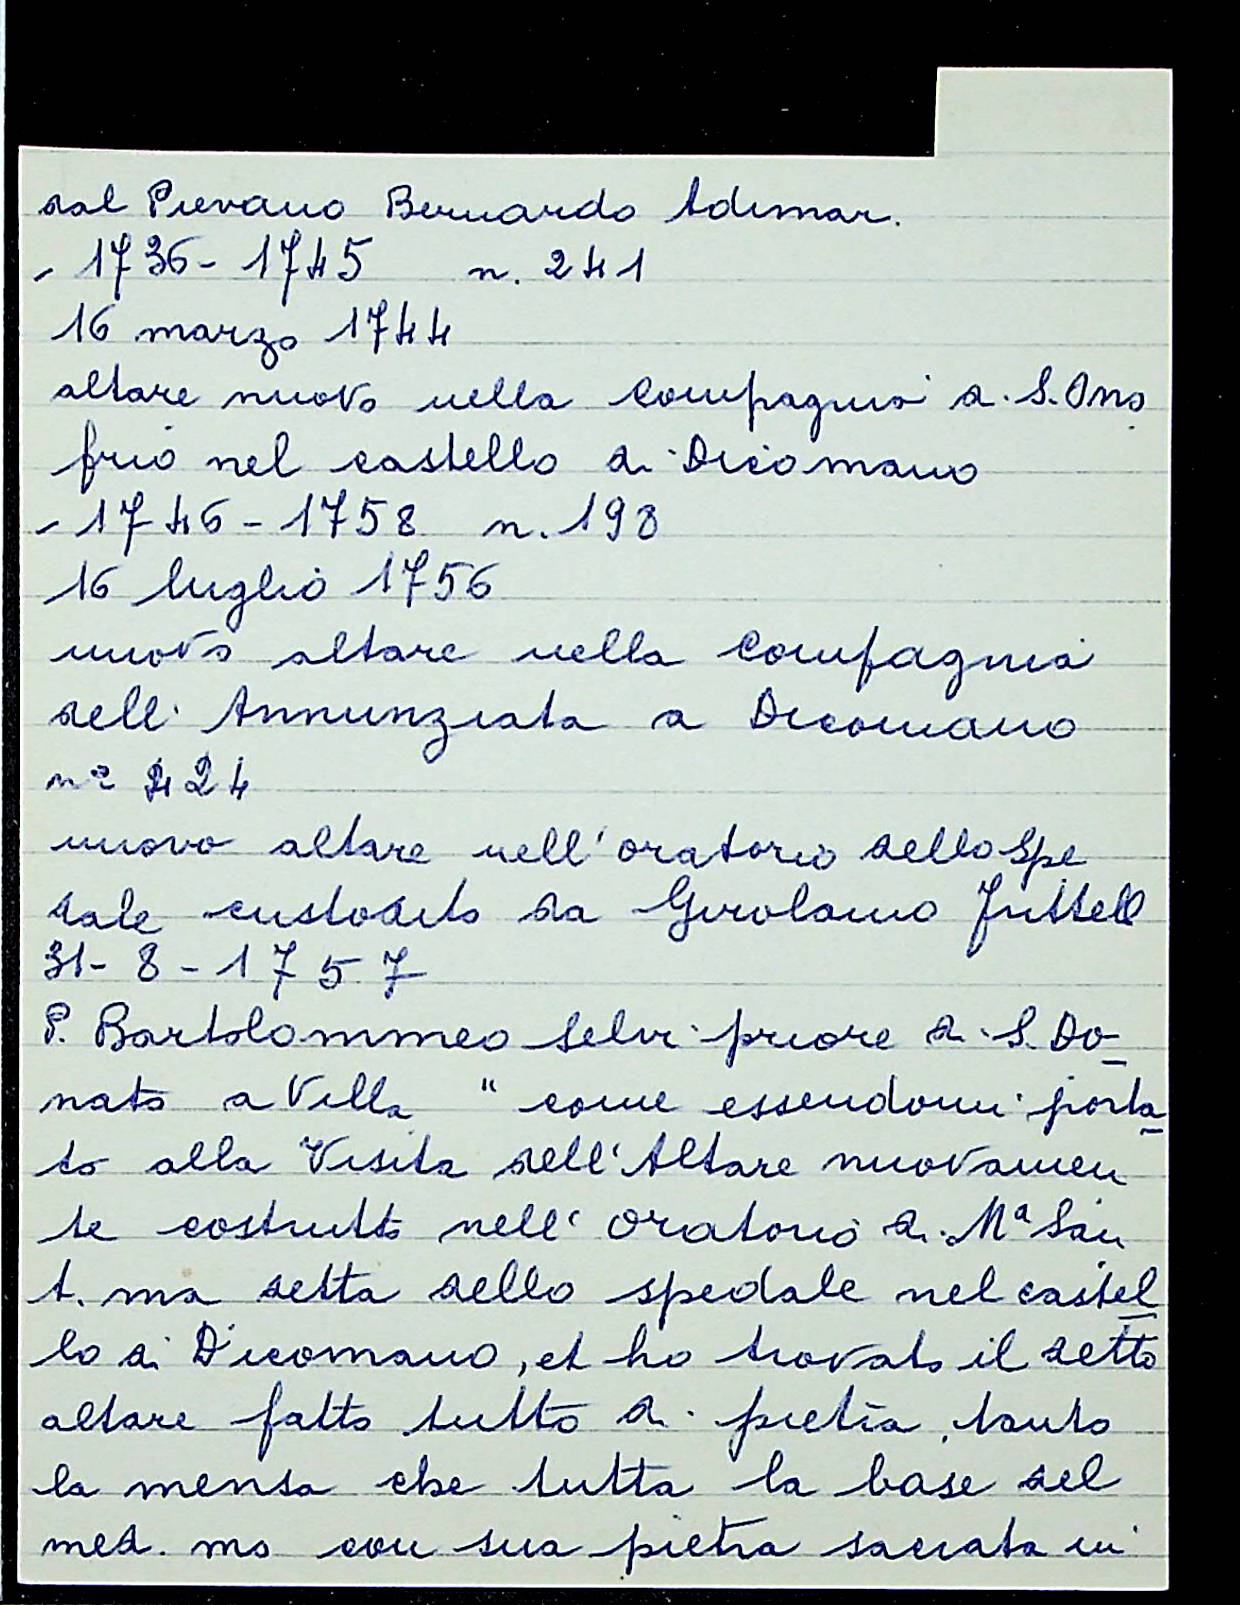 dal Pievano Bernardo Adimar.
- 1736-1745 n. 241
16 marzo 1744
altare nuovo nella Compagnia di S. Ono
frio nel castello di Dicomano
- 1746-1758 n. 198
16 luglio 1756
nuovo altare nella Compagnia
dell'Annunziata a Dicomano
n° 224
nuovo altare nell'oratorio dello Spe
dale custodito da Girolamo
31-8-1757
P. Bartolommeo Selvi priore di S. Do-
nato a Villa " come essendomi porta-
to alla Visita dell'Altare nuovamen
te costrutto nell'Oratorio di Mª San
t.ma detta dello spedale nel castel
lo di Dicomano, et ho trovato il detto
altare fatto tutto di pietra, tanto
la mensa che tutta la base del
med.mo con sua pietra sacrata in